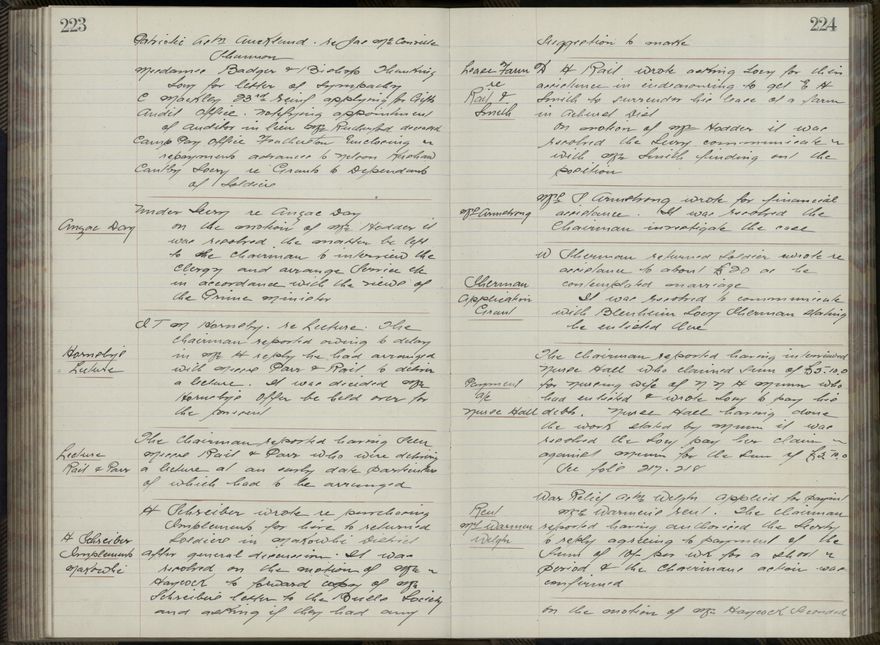 223
Patriotic Assn Auckland. re Jas McConville
Shannon
Mesdames Badger & Bishop Thanking
Socy for letter of Sympathy
C Mackley 33rd Reinf applying for Gifts
Audit Office. Notifying appointment
of Auditor in lieu Mr deceased
Camp Pay Office Featherston Enclosing
repayments advances to Nelson
Cantby Socy re Grants to Dependants
of Soldiers
Under Secy re Anzac Day
Anzac Day
on the motion of Mr Hodder it
was resolved the matter be left
to the Chairman to interview the
Clergy and arrange Service etc
in accordance with the views of
the Prime Minister
I T M Hornsby. re Lecture. The
Hornsby's
Lecture
Chairman reported owing to delay
in Mr H reply he had arranged
with Messrs Parr & Rait to deliver
a lecture. It was decided Mr
Hornsby's offer be held over for
the present
The Chairman reported having seen
Lecture
Rait & Parr
Messrs Rait & Parr who were delivering
a lecture at an early date particulars
of which had to be arranged
H Schreiber wrote re purchasing
H Schreiber
Implements
Makowhai
Implements for hire to returned
Soldiers in Makowhai District
after general discussion. It was
resolved on the motion of Mr
Haycock to forward copy of Mr
Schreiber's letter to the Bulls Society
and asking if they had any
224
Suggestion to make
Lease Farm
re
Rait &
Smith
D H Rait wrote asking Socy for their
assistance in endeavouring to get E H
Smith to surrender his lease of a farm
in Dist
On motion of Mr Hodder it was
resolved the Secy communicate
with Mr Smith finding out the
position
Mrs Armstrong
Mrs S. Armstrong wrote for financial
assistance. It was resolved the
Chairman investigate the case
W Sherman returned soldier wrote re
Sherman
Application
Grant
assistance to about £20 as he
contemplated marriage
It was resolved to communicate
with Blenheim Socy Sherman stating
he enlisted there
The Chairman reported having interviewed
Payment
a/c
Nurse Hall
Nurse Hall who claimed sum of £3-10.0
for nursing wife of N N H Munn who
had enlisted & wrote Socy to pay his
debts. Nurse Hall having done
the work stated by Munn it was
resolved the Socy pay her claim
against Munn for the sum of £3 10.0
See folio 217.218
War Relief Assn Welgtn applied for payment
Rent
Mrs Warmen
Welgtn
Mrs Warmen's rent. The Chairman
reported having authorised the Secty
to reply agreeing to payment of the
Sum of 10/- per wk for a short
period & the Chairmans action was
confirmed
On the motion of Mr Haycock Seconded